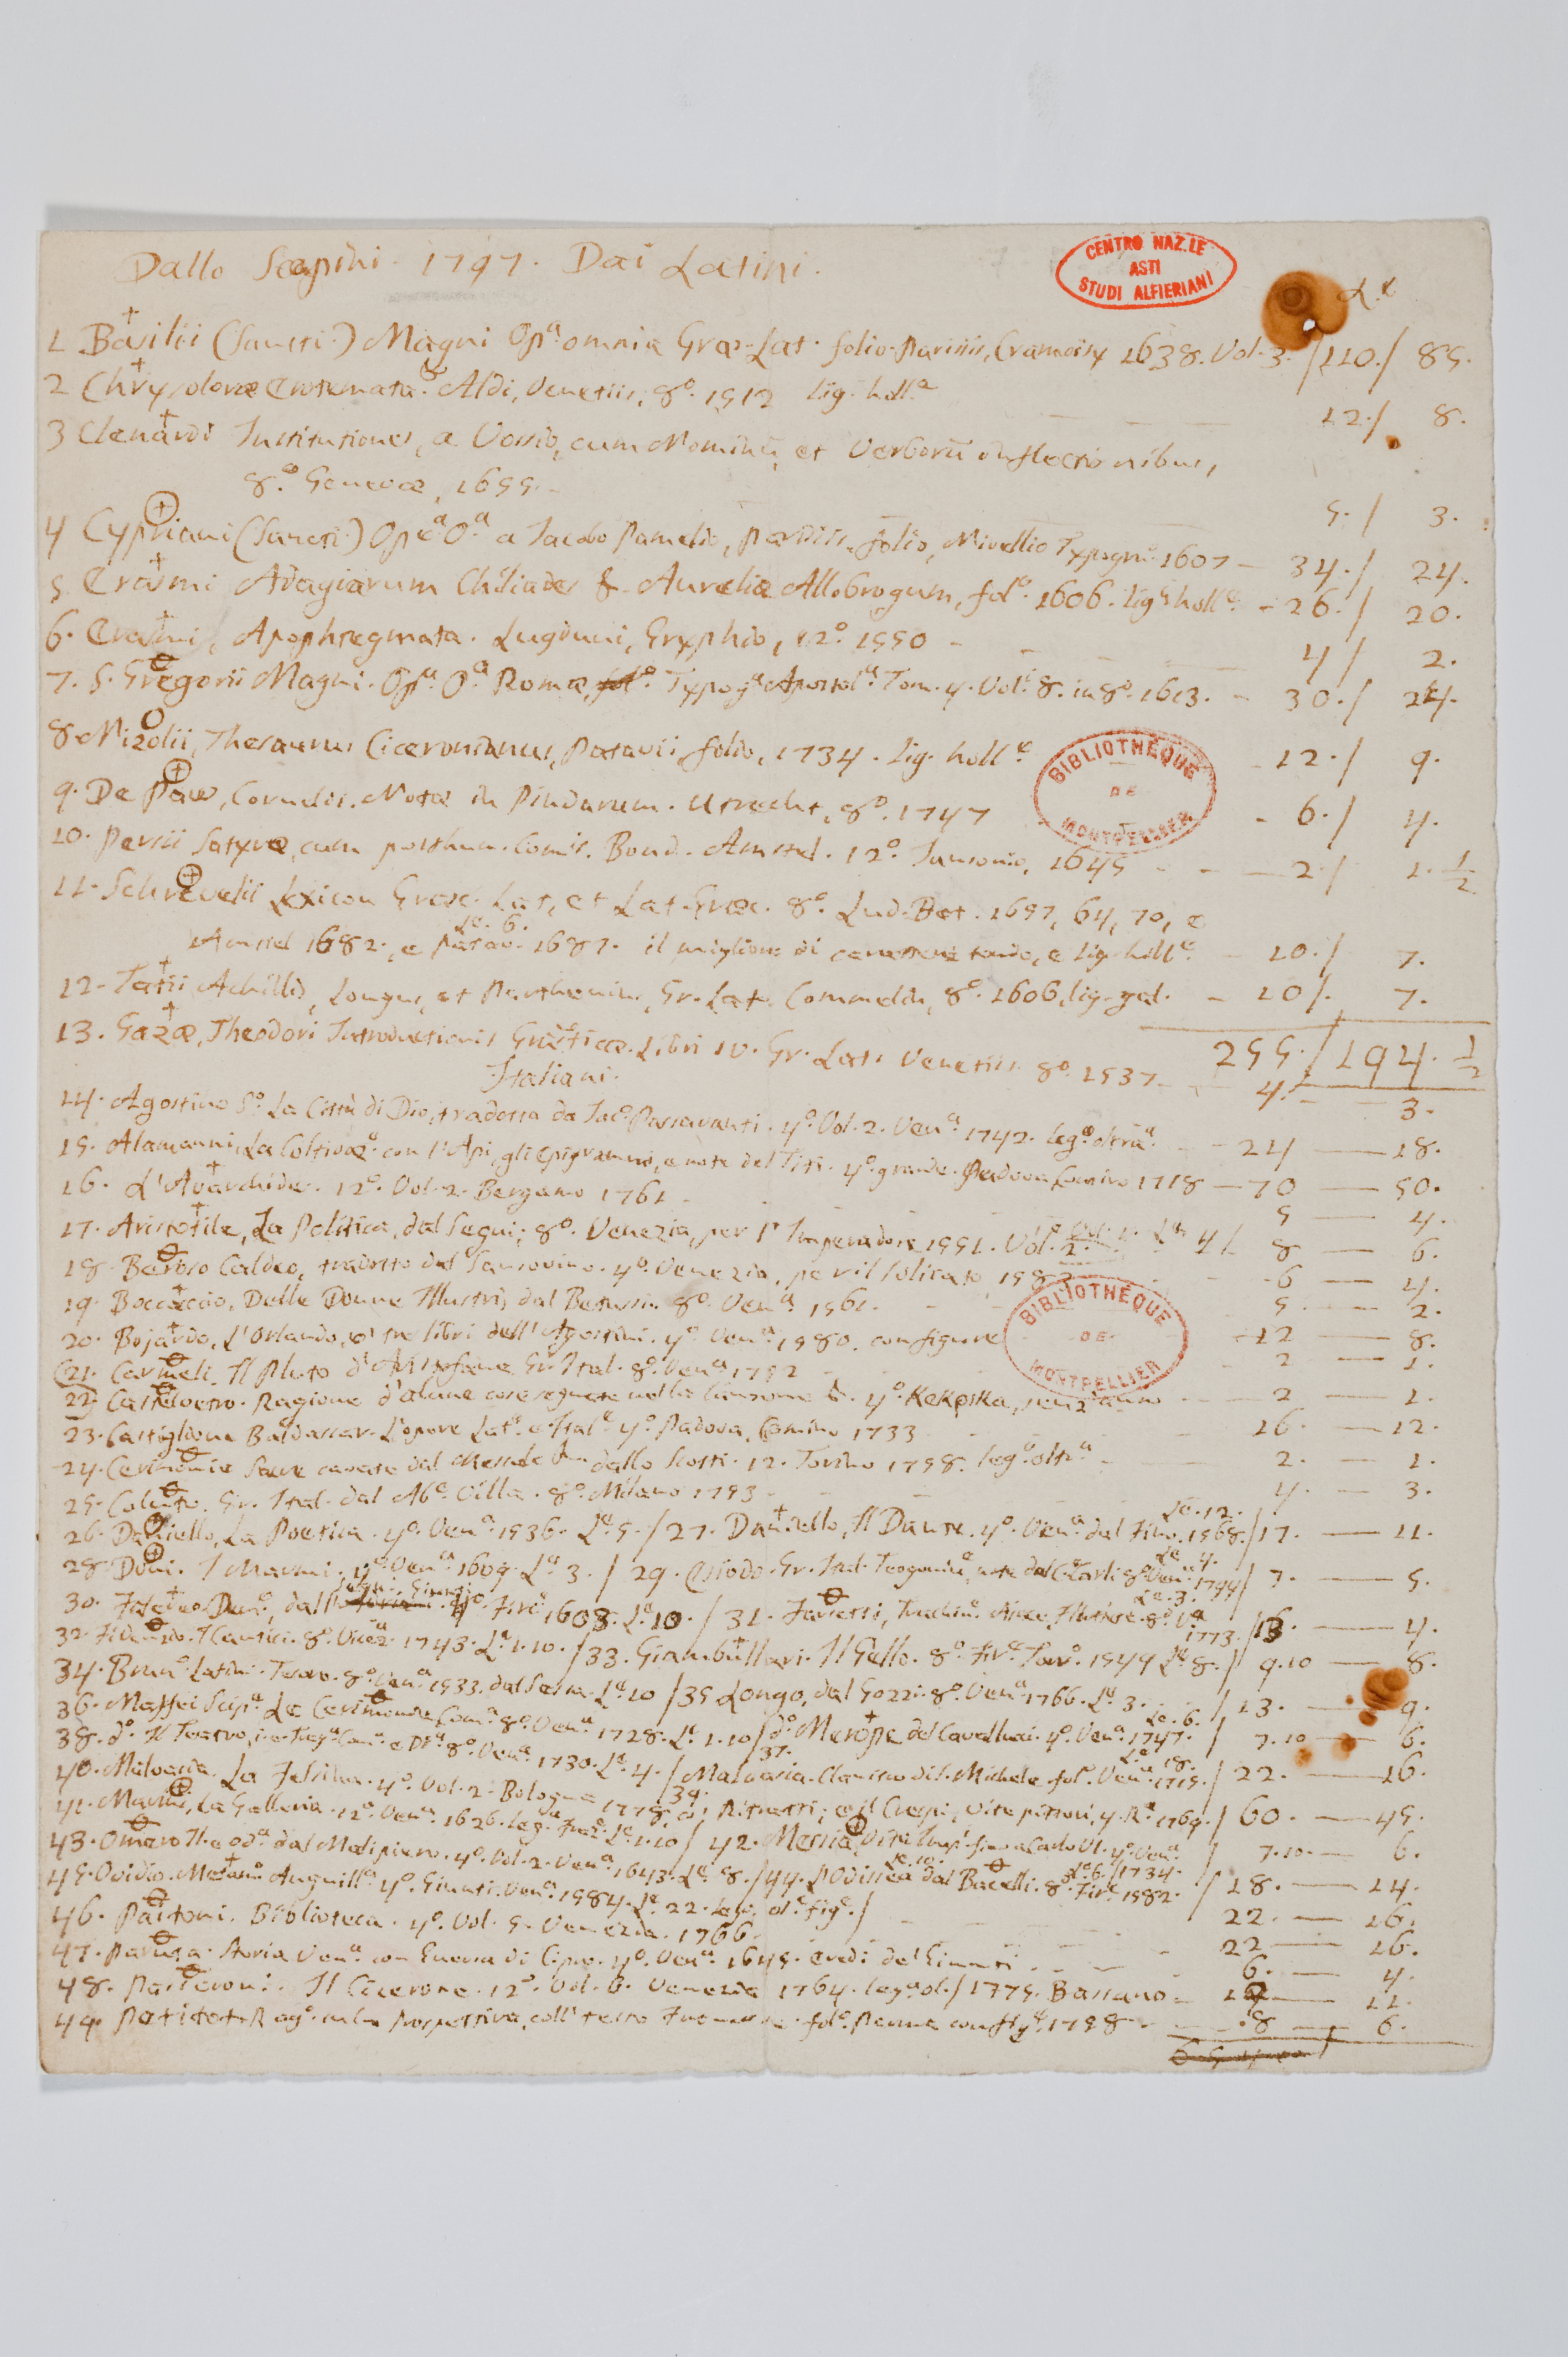 Dallo Scapini. 1797. Dai Latini.
CENTRO NAZ.LE
ASTI
STUDI ALFIERIANI
L.e
1 Basilii (Sancti.) Magni Op.a omnia Græ-Lat. folio. Parisiis, Cramoisy 1638. Vol. 3. / 110. / 85.
2 Chrysoloræ Erotemata. Aldi, Venetiis, 8.o 1512 lig. holl.a 12. / 8.
3 Clenardi Institutiones, a Vossio, cum Nominū, et Verborū inflectionibus,
8.o Genevæ, 1655. 5. / 3.
4 Cypriani (Sancti.) Op.a O.a a Jacobo Pamelio, Parisiis, folio, Nivellio Typogr.o 1607 - 34. / 24.
5 Erasmi Adagiarum Chiliades & Aureliæ Allobrogum, fol.o 1606. lig. holl.e - 26. / 20.
6. Erasmi, Apophtegmata. Lugduni, Gryphio, 12.o 1550 - 4 / 2.
7. S. Gregorii Magni. Op.a O.a Romæ, Typog.a Apostol.a Tom. 4. Vol.i 8. in 8.o 1613. - 30. / 24.
8. Nizolii, Thesaurus Ciceronianus, Patavii, folio, 1734. lig. holl.e - 12. / 9.
BIBLIOTHÈQUE
DE
MONTPELLIER
9. De Paw, Cornelii. Notæ in Pindarum. Utrecht, 8.o 1747 - 6. / 4.
10. Persii Satyræ, cum posthum. Com. Bond. Amstel. 12.o Jansonio, 1645 - - - 2. / 1. 1/2
11. Schrevelii Lexicon Græc. Lat, et Lat. Græc. 8.o Lud. Bat. 1657, 64, 70, e
L.e 6.
Amstel 1682., e Patav. 1687. il migliore di tondo, e lig. holl.e - 10. / 7.
12. Tatii Achillis, Longus, et Parthenius, Gr. Lat. Commelin, 8.o 1606, lig. gal. - 10 /. 7.
255. / 194. 1/2
13. Gazæ, Theodori Introductionis Gram̄ticæ. Libri IV. Gr. Lat. Venetiis 8.o 1537 - 4. - 3.
Italiani.
14. Agostino S.o La Città di Dio, tradotta da Jac.o Passavanti. 4.o Vol. 2. Ven.a 1742. leg.e oltra.a - 24 - 18.
15. Alamanni, La Coltivaz.e con l'Api, gli Epigrammi, e note del Titi. 4.o grande. Padova, Comino 1718 - 70 - 50.
16. L'Avarchide. 12.o Vol. 2. Bergamo 1761 - 5 - 4.
17. Aristotile, La Politica, dal Segni; 8.o Venezia, per l'Imperadore 1551. Vol. 2. 8 - 6.
18. Beroso Caldeo, tradotto dal Sansovino. 4.o Venezia, per il Solicato, 1583 - 6 - 4.
19. Boccaccio, Delle Donne Illustri, dal Betussi. 8.o Ven.a 1561. - 5 - 2.
20. Bojardo, L'Orlando, e i tre libri dell'Agostini. 4.o Ven.a 1580. con figure - 12 - 8.
BIBLIOTHÈQUE
DE
MONTPELLIER
21. Carmeli. Il Pluto d'Aristofane Gr. Ital. 8.o Ven.a 1752 - 2 - 1.
22. Castelvetro. Ragione d'alcune cose segnate nella Canzone &. 4.o Kekpika, senz'anno - 2 - 1.
23. Castiglione Baldassar. L'opere Lat.e e Ital.e 4.o Padova, Comino 1733 16. - 12.
24. Cerimonie Sacre cavate dal Messale & dallo Scotti. 12. Torino 1758. leg.o oltr.a 2. - 1.
25. Coluto. Gr. Ital. dal Ab.e Villa. 8.o Milano 1753 - 4. - 3.
26. Daniello, La Poetica. 4.o Ven.a 1536. L.e 5. / 27. Daniello, Il Dante. 4.o Ven.a dal Fino. 1568. L.e 12. / 17. - 11.
28. Doni. I Marmi. 4.o Ven.a 1609. L.e 3. / 29. Esiodo Gr. Ital. Teogonia, note del C.e Carli 8.o Ven.a 1744 L.e 4. / 7. - 5.
30. Dem.o, dal 4.o Fir.e 1608. L.e 10. / 31. 8.o 1773. L.e 3. / 13. - 4.
32. I Cantici. 8.o Vicez.a 1743. L.e 1.10. / 33. Giambullari. Il Gello. 8.o Fir.e 1549 L.e 8. / 9.10 - 8.
34. Brun.o Latini. Tesoro. 8.o Ven.a 1533. dal Sessa. L.e 10 / 35 Longo, dal Gozzi. 8.o Ven.a 1766. L.e 3. / 13. - 9.
36. Maffei Scip.e Le Cerimonie Com.a 8.o Ven.a 1728. L.e 1.10 / 37. d.o Merope del Cavelluci. 4.o Ven.a 1747. L.e 6. / 7.10 - 6.
38. d.o Il Teatro, i.e Trag.a Com.a e Dr.a 8.o Ven.a 1730. L.e 4. / 39. Malvasia. Claustro di S. Michele fol.o 1715. L.e 18. / 22. - 16.
40. Malvasia. La Felsina. 4.o Vol. 2. Bologna 1778, co' Ritratti; e il Crespi, vite pittori, 4. R.a 1769. / 60. - 45.
41. Marini, La Galleria. 12.o Ven.a 1626. leg. L.e 1.10 / 42. Messia, Vite Imp.i fino a Carlo VI. 4.o Ven.a / 7.10 - 6.
43. Omero Il. e Od.a dal Malipiero. 4.o Vol. 2. Ven.a 1643. L.e 8. / 44. L'Odissea dal Bacelli. 8.o Fir.e 1582. L.e 10. / 18. - 14.
45. Ovidio. Metam. Anguill.a 4.o Giunti. Ven.a 1584. L.e 22. leg. ol.e fig.e / 22. - 16.
46. Paitoni. Biblioteca. 4.o Vol. 5. Venezia. 1766 22 - 16.
47. Paruta. Storia Ven.a con Guerra di Cipro. 4.o Ven.a 1645. eredi de' Giunti 6. - 4.
48. Passeroni. Il Cicerone. 12.o Vol. 6. Venezia 1764. leg.a ol. / 1775. Bassano - 11.
49. Petitot. Rag.o sulla Prospettiva, coll' testo Francese. fol.o Parma con fig.e 1758 - 8 - 6.